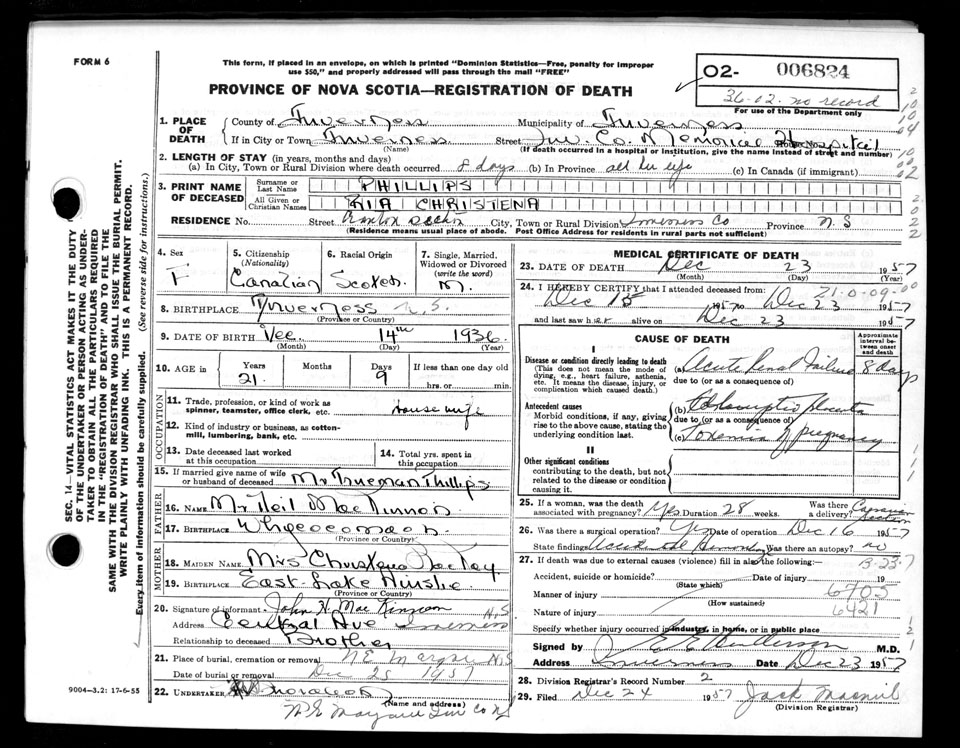 FORM 6
This form, if placed in an envelope, on which is printed "Dominion Statistics—Free, penalty for improper
use $50," and properly addressed will pass through the mail "FREE"
PROVINCE OF NOVA SCOTIA—REGISTRATION OF DEATH
O2- 006824
36-02. no record
For use of the Department only
1. PLACE OF DEATH
County of Inverness Municipality of Inverness
If in City or Town Inverness Street Inv. Co. Memorial Hospital
(Name) (If death occurred in a hospital or institution, give the name instead of street and number)
2. LENGTH OF STAY (in years, months and days)
(a) In City, Town or Rural Division where death occurred 8 days (b) In Province all her life (c) In Canada (if immigrant)
3. PRINT NAME OF DECEASED
Surname or Last Name PHILLIPS
All Given or Christian Names RIA CHRISTENA
RESIDENCE No. Street City, Town or Rural Division Inverness Co Province N.S
(Residence means usual place of abode. Post Office Address for residents in rural parts not sufficient)
4. Sex
F
5. Citizenship (Nationality)
Canadian
6. Racial Origin
Scotch.
7. Single, Married, Widowed or Divorced (write the word)
M.
8. BIRTHPLACE Inverness N.S.
(Province or Country)
9. DATE OF BIRTH Dec 14th 1936
(Month) (Day) (Year)
10. AGE in Years Months Days If less than one day old
21 9 hrs. or min.
OCCUPATION
11. Trade, profession, or kind of work as spinner, teamster, office clerk, etc. House wife
12. Kind of industry or business, as cotton-mill, lumbering, bank, etc.
13. Date deceased last worked at this occupation
14. Total yrs. spent in this occupation
15. If married give name of wife or husband of deceased Mr Trueman Phillips
FATHER
16. NAME Mr Neil MacKinnon
17. BIRTHPLACE Whycocomagh
(Province or Country)
MOTHER
18. MAIDEN NAME Mrs Christena
19. BIRTHPLACE East Lake Ainslie
(Province or Country)
20. Signature of informant John H. MacKinnon
Address Central Ave Inverness N.S
Relationship to deceased Brother
21. Place of burial, cremation or removal N.E. Margaree N.S
Date of burial or removal Dec 25 1957
22. UNDERTAKER
(Name and address)
N.E Margaree Inv Co NS
9004-3.2: 17-6-55
MEDICAL CERTIFICATE OF DEATH
23. DATE OF DEATH Dec 23 1957
(Month) (Day) (Year)
24. I HEREBY CERTIFY that I attended deceased from:
21-0-09-00
Dec 15 1957 to Dec 23 1957
and last saw her alive on Dec 23 1957
CAUSE OF DEATH
Approximate interval between onset and death
I
Disease or condition directly leading to death
(This does not mean the mode of dying, e.g., heart failure, asthenia, etc. It means the disease, injury, or complication which caused death.)
(a) Acute Renal Failure 8 days
due to (or as a consequence of)
Antecedent causes
Morbid conditions, if any, giving rise to the above cause, stating the underlying condition last.
(b) Placenta
due to (or as a consequence of)
(c) Toxemia of pregnancy
II
Other significant conditions
contributing to the death, but not related to the disease or condition causing it.
25. If a woman, was the death associated with pregnancy? Yes Duration 28 weeks. Was there a delivery? Caesarean Section
26. Was there a surgical operation? Yes Date of operation Dec 16 1957
State findings Was there an autopsy? no
27. If death was due to external causes (violence) fill in also the following:
B-23-7
Accident, suicide or homicide? Date of injury 19
(State which)
Manner of injury 6705
(How sustained)
Nature of injury 6421
Specify whether injury occurred in industry, in home, or in public place
Signed by M.D.
Address Inverness Date Dec 23 1957
28. Division Registrar's Record Number 2
29. Filed Dec 24 1957 Jack Macneil
(Division Registrar)
SEC. 14—VITAL STATISTICS ACT MAKES IT THE DUTY
OF THE UNDERTAKER OR PERSON ACTING AS UNDER-
TAKER TO OBTAIN ALL THE PARTICULARS REQUIRED
IN THE "REGISTRATION OF DEATH" AND TO FILE THE
SAME WITH THE DIVISION REGISTRAR WHO SHALL ISSUE THE BURIAL PERMIT.
WRITE PLAINLY WITH UNFADING INK. THIS IS A PERMANENT RECORD.
Every item of information should be carefully supplied. (See reverse side for instructions.)